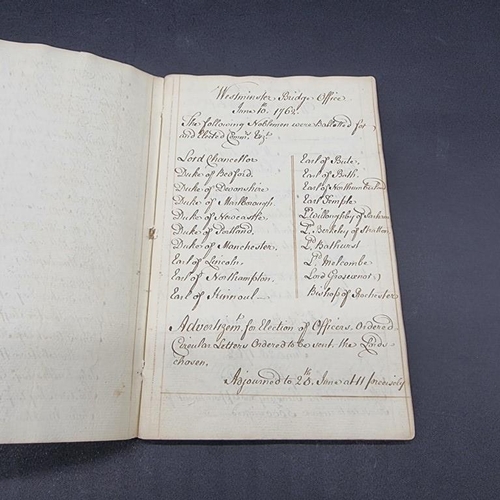 Westminster Bridge Office
June 10th. 1762.
The following Noblemen were Ballotted for
and Elected Commrs. &ca.
Lord Chancellor
Duke of Bedford.
Duke of Devonshire
Duke of Marlborough
Duke of Newcastle.
Duke of Portland.
Duke of Manchester.
Earl of Lincoln.
Earl of Northampton.
Earl of Kinnoul
Earl of Bute.
Earl of Bath.
Earl of Northumberland
Earl Temple.
Ld. Willoughby of Parham
Ld. Berkeley of Stratton
Ld. Bathurst
Ld. Melcombe
Lord Grosvenor
Bishop of Rochester
Advertizemts. for Election of Officers Ordered
Circular Letters Ordered to be sent the Lords
chosen.
Adjourned to June at 11 precisely